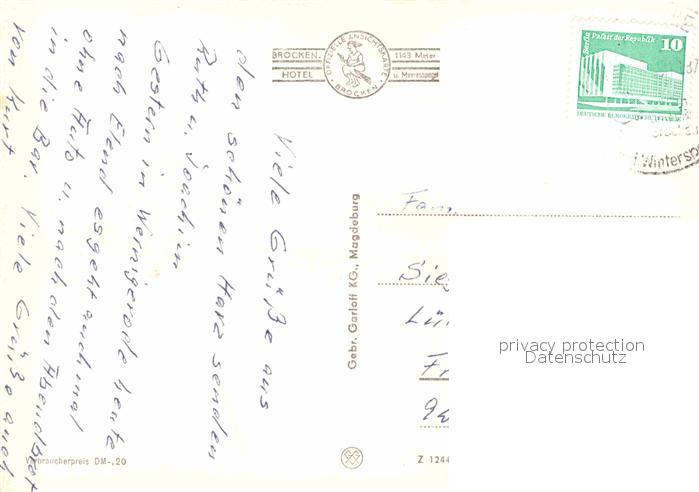 BROCKEN.
HOTEL
OFFIZIELLE ANSICHTSKARTE
BROCKEN
1143 Meter
u. Meeresspiegel
Berlin Palast der Republik
10
DEUTSCHE DEMOKRATISCHE
Winterspo
Viele Grüße aus
den schönen Harz senden
Ruth u. Joachim
Gestern in Wernigerode heute
nach Elend es geht auch mal
ohne Auto u. nach den Abendbrot
in die Bar. Viele Grüße auch
von Kurt
Gebr. Garloff KG., Magdeburg
Fam.
Sie
Lü
Fr
privacy protection
Datenschutz
Verbraucherpreis DM-,20
Z 1244